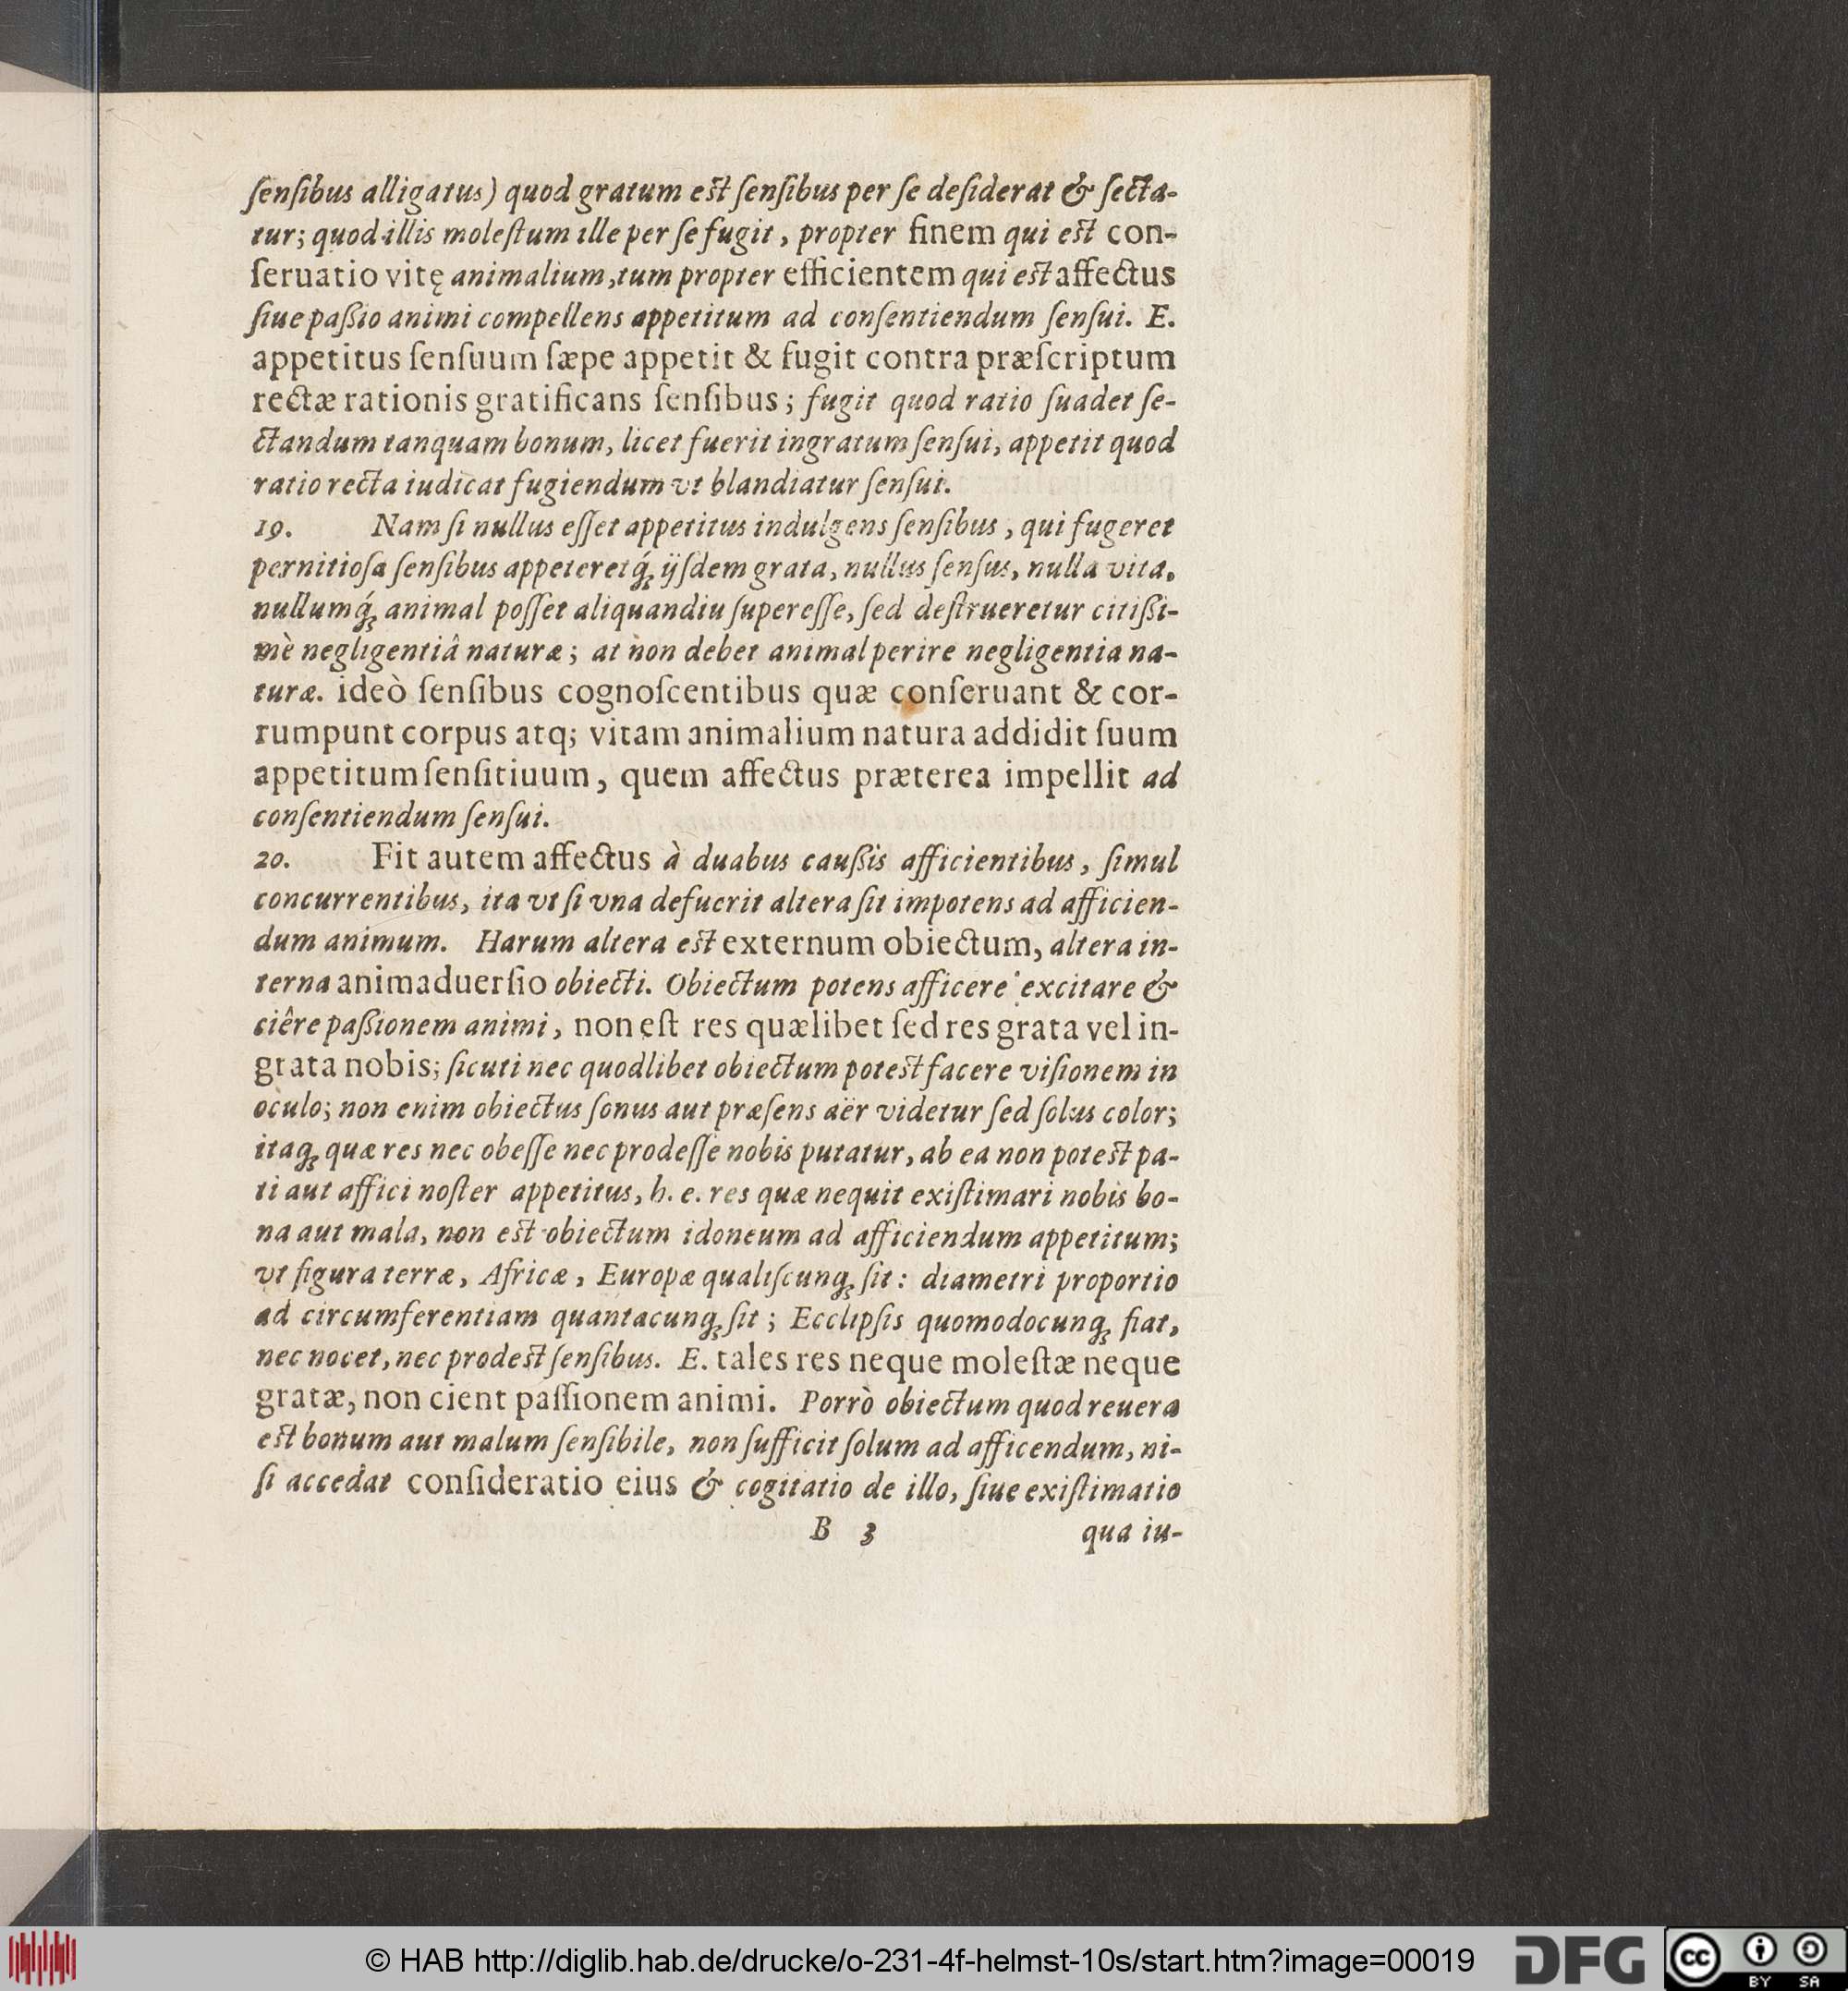 ſenſibus alligatus) quod gratum eſt ſenſibus per ſe deſiderat & ſecta-
tur; quod illis moleſtum ille per ſe fugit, propter finem qui eſt con-
ſeruatio vitę animalium, tum propter efficientem qui eſt affectus
ſiue paßio animi compellens appetitum ad conſentiendum ſenſui. E.
appetitus ſenſuum ſæpe appetit & fugit contra præſcriptum
rectæ rationis gratificans ſenſibus; fugit quod ratio ſuadet ſe-
ctandum tanquam bonum, licet fuerit ingratum ſenſui, appetit quod
ratio recta iudicat fugiendum vt blandiatur ſenſui.
19. Nam ſi nullus eſſet appetitus indulgens ſenſibus, qui fugeret
pernitioſa ſenſibus appeteretq́; ijſdem grata, nullus ſenſus, nulla vita,
nullumq́; animal poſſet aliquandiu ſupereſſe, ſed deſtrueretur citißi-
mè negligentiâ naturæ; at non debet animal perire negligentia na-
turæ. ideò ſenſibus cognoſcentibus quæ conſeruant & cor-
rumpunt corpus atq; vitam animalium natura addidit ſuum
appetitum ſenſitiuum, quem affectus præterea impellit ad
conſentiendum ſenſui.
20. Fit autem affectus à duabus caußis afficientibus, ſimul
concurrentibus, ita vt ſi vna defuerit altera ſit impotens ad afficien-
dum animum. Harum altera eſt externum obiectum, altera in-
terna animaduerſio obiecti. Obiectum potens afficere excitare &
ciêre paßionem animi, non eſt res quælibet ſed res grata vel in-
grata nobis; ſicuti nec quodlibet obiectum poteſt facere viſionem in
oculo; non enim obiectus ſonus aut præſens aër videtur ſed ſolus color;
itaq; quæ res nec obeſſe nec prodeſſe nobis putatur, ab ea non poteſt pa-
ti aut affici noſter appetitus, h. e. res quæ nequit exiſtimari nobis bo-
na aut mala, non eſt obiectum idoneum ad afficiendum appetitum;
vt figura terræ, Africæ, Europæ qualiſcunq; ſit: diametri proportio
ad circumferentiam quantacunq; ſit; Ecclipſis quomodocunq; fiat,
nec nocet, nec prodeſt ſenſibus. E. tales res neque moleſtæ neque
gratæ, non cient paſſionem animi. Porrò obiectum quod reuera
eſt bonum aut malum ſenſibile, non ſufficit ſolum ad afficendum, ni-
ſi accedat conſideratio eius & cogitatio de illo, ſiue exiſtimatio
B 3 qua iu-
© HAB http://diglib.hab.de/drucke/o-231-4f-helmst-10s/start.htm?image=00019
DFG
cc BY SA